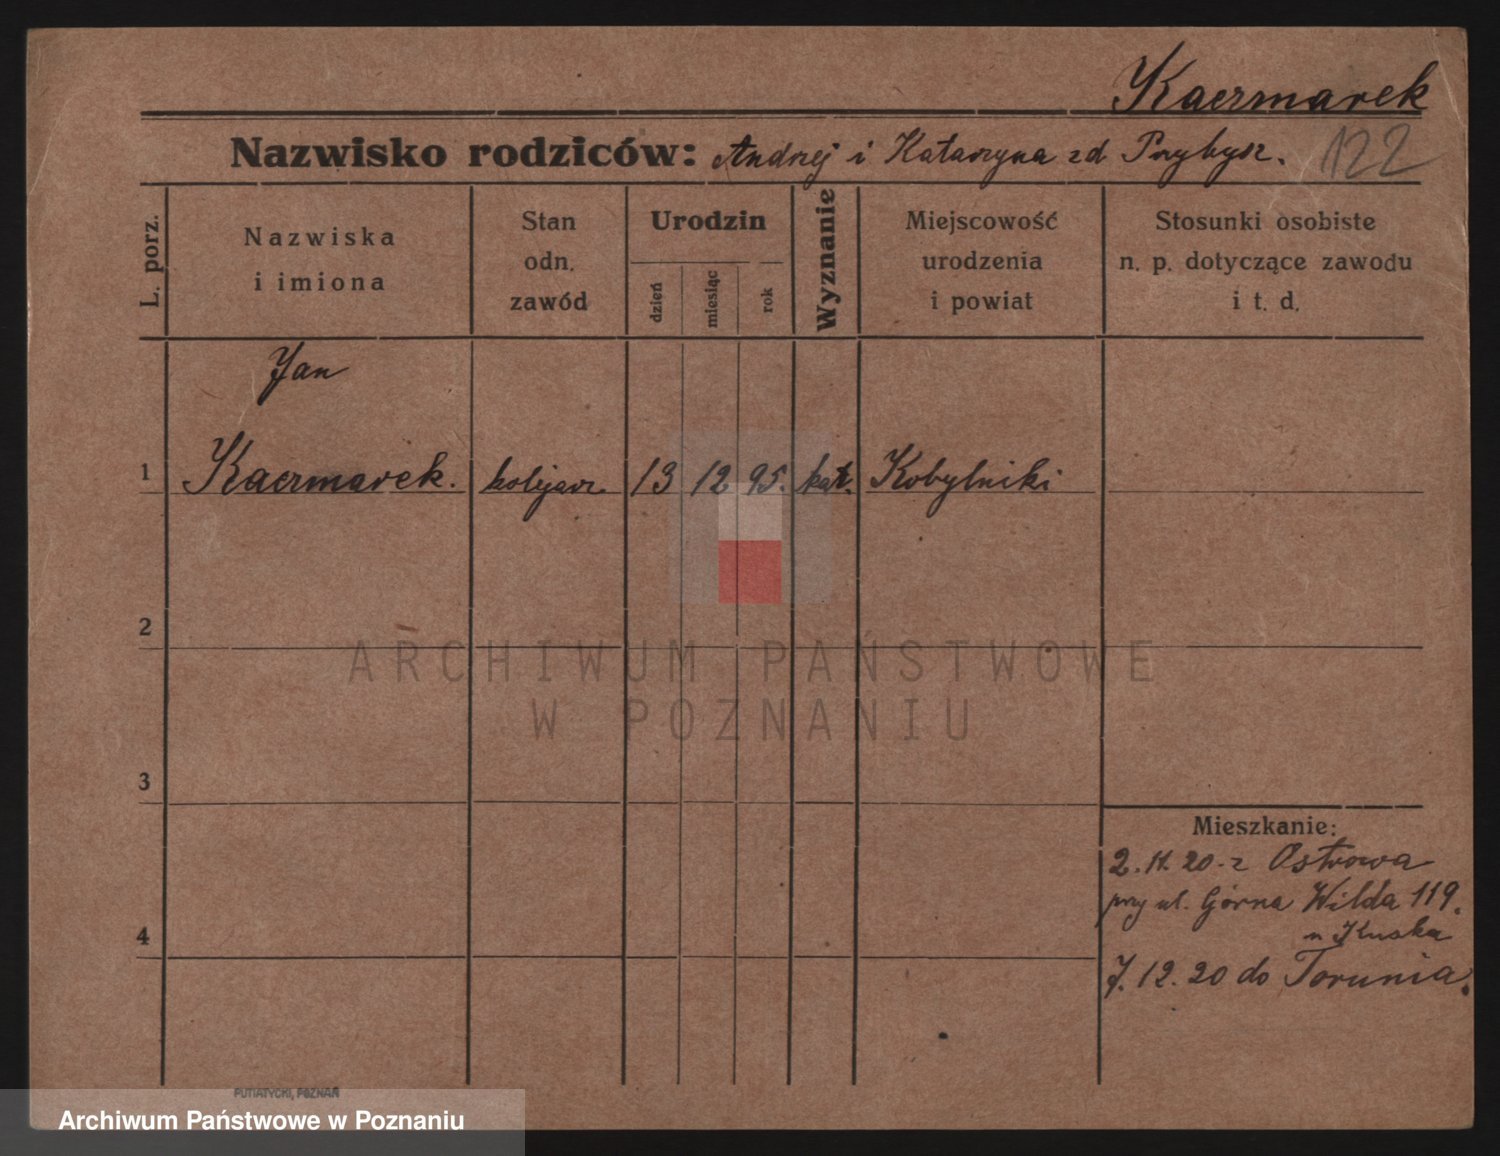 Kaczmarek
Nazwisko rodziców: Andrzej i Katarzyna zd Przybysz.
122
L. porz.
Nazwiska
i imiona
Stan
odn.
zawód
Urodzin
dzień
miesiąc
rok
Wyznanie
Miejscowość
urodzenia
i powiat
Stosunki osobiste
n. p. dotyczące zawodu
i t. d.
Jan
1 Kaczmarek. kolejarz. 13 12 95. kat. Kobylniki
2
ARCHIWUM PAŃSTWOWE
W POZNANIU
3
Mieszkanie:
2. 11. 20 - z Ostrowa
przy ul. Górna Wilda 119.
u Kuska
4
7. 12. 20 do Torunia.
PUTIATYCKI, POZNAŃ
Archiwum Państwowe w Poznaniu